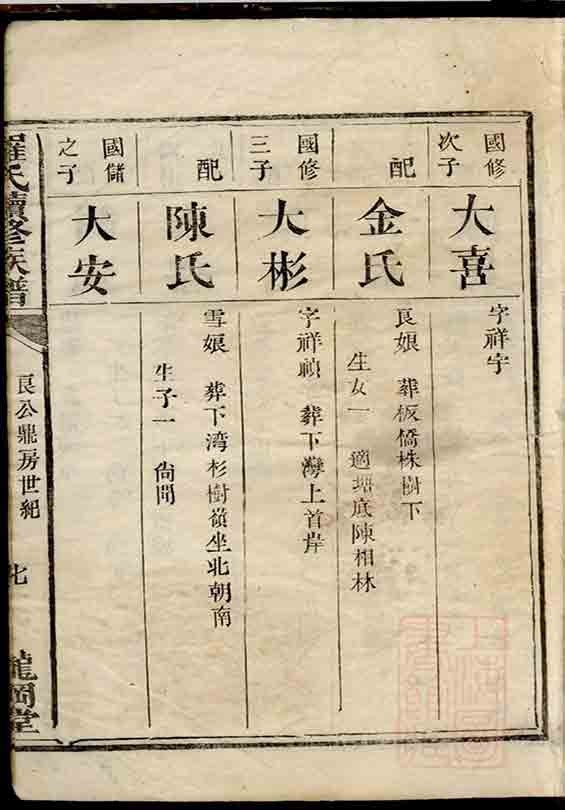 國修次子
大喜
字祥宇
配
金氏
良娘 葬板僑株樹下
生女一 適塘底陳相林
國修三子
大彬
字祥禎 葬下灣上首岸
配
陳氏
雪娘 葬下湾杉樹嶺坐北朝南
生子一 尙聞
國儲之子
大安
羅氏續修族譜
良公鼎房世紀
七
龍岡堂